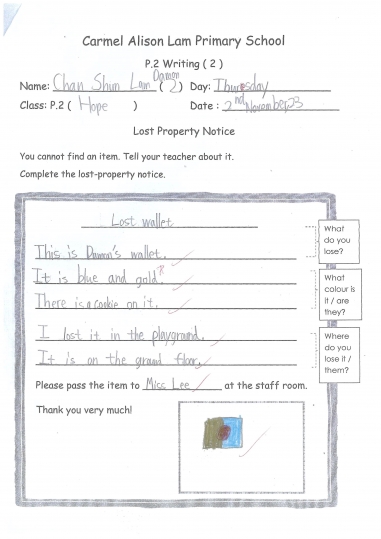 Carmel Alison Lam Primary School
P.2 Writing ( 2 )
Name: Chan Shun Lam Damon ( 2 ) Day: Thursday
Class: P.2 ( Hope ) Date : 2nd November,23
Lost Property Notice
You cannot find an item. Tell your teacher about it.
Complete the lost-property notice.
Lost wallet
This is Damon's wallet.
It is blue and gold.
There is a cookie on it.
I lost it in the playground.
It is on the ground floor.
What do you lose?
What colour is it / are they?
Where do you lose it / them?
Please pass the item to Miss Lee at the staff room.
Thank you very much!